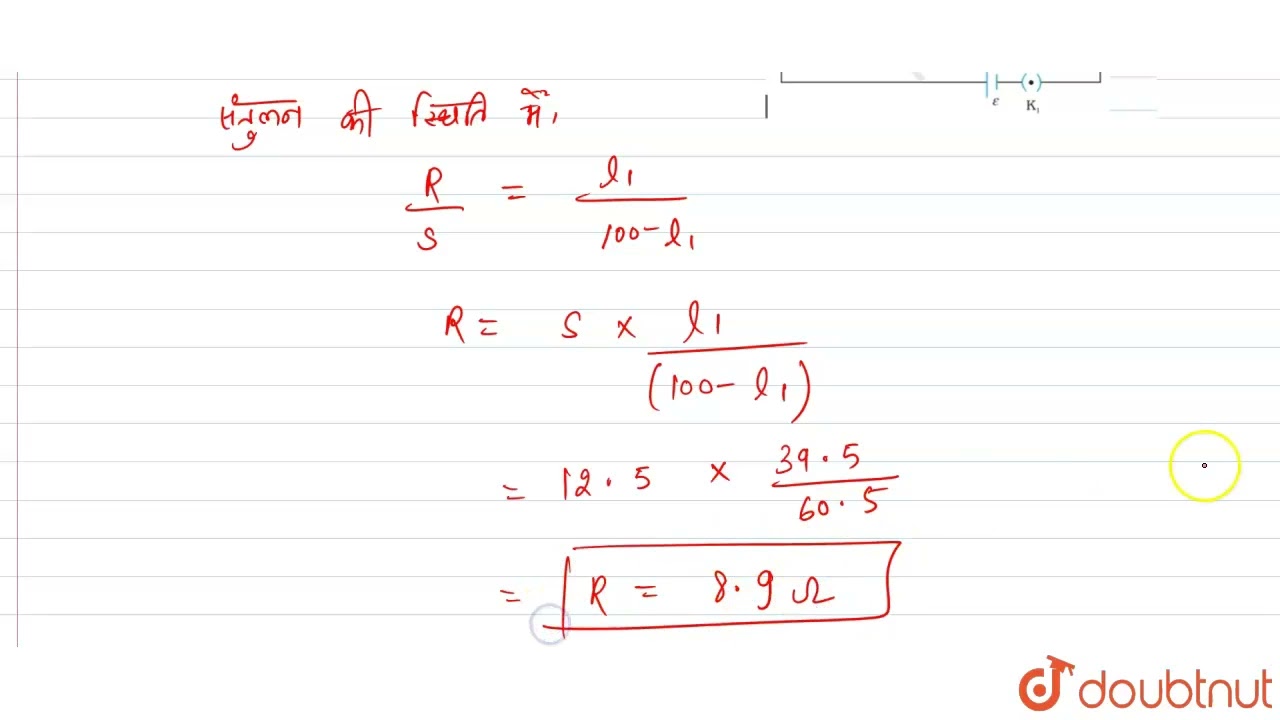 ε K₁
संतुलन की स्थिति में,
R/S = l₁/100-l₁
R = S × l₁/(100-l₁)
= 12.5 × 39.5/60.5
= R = 8.9 Ω
doubtnut